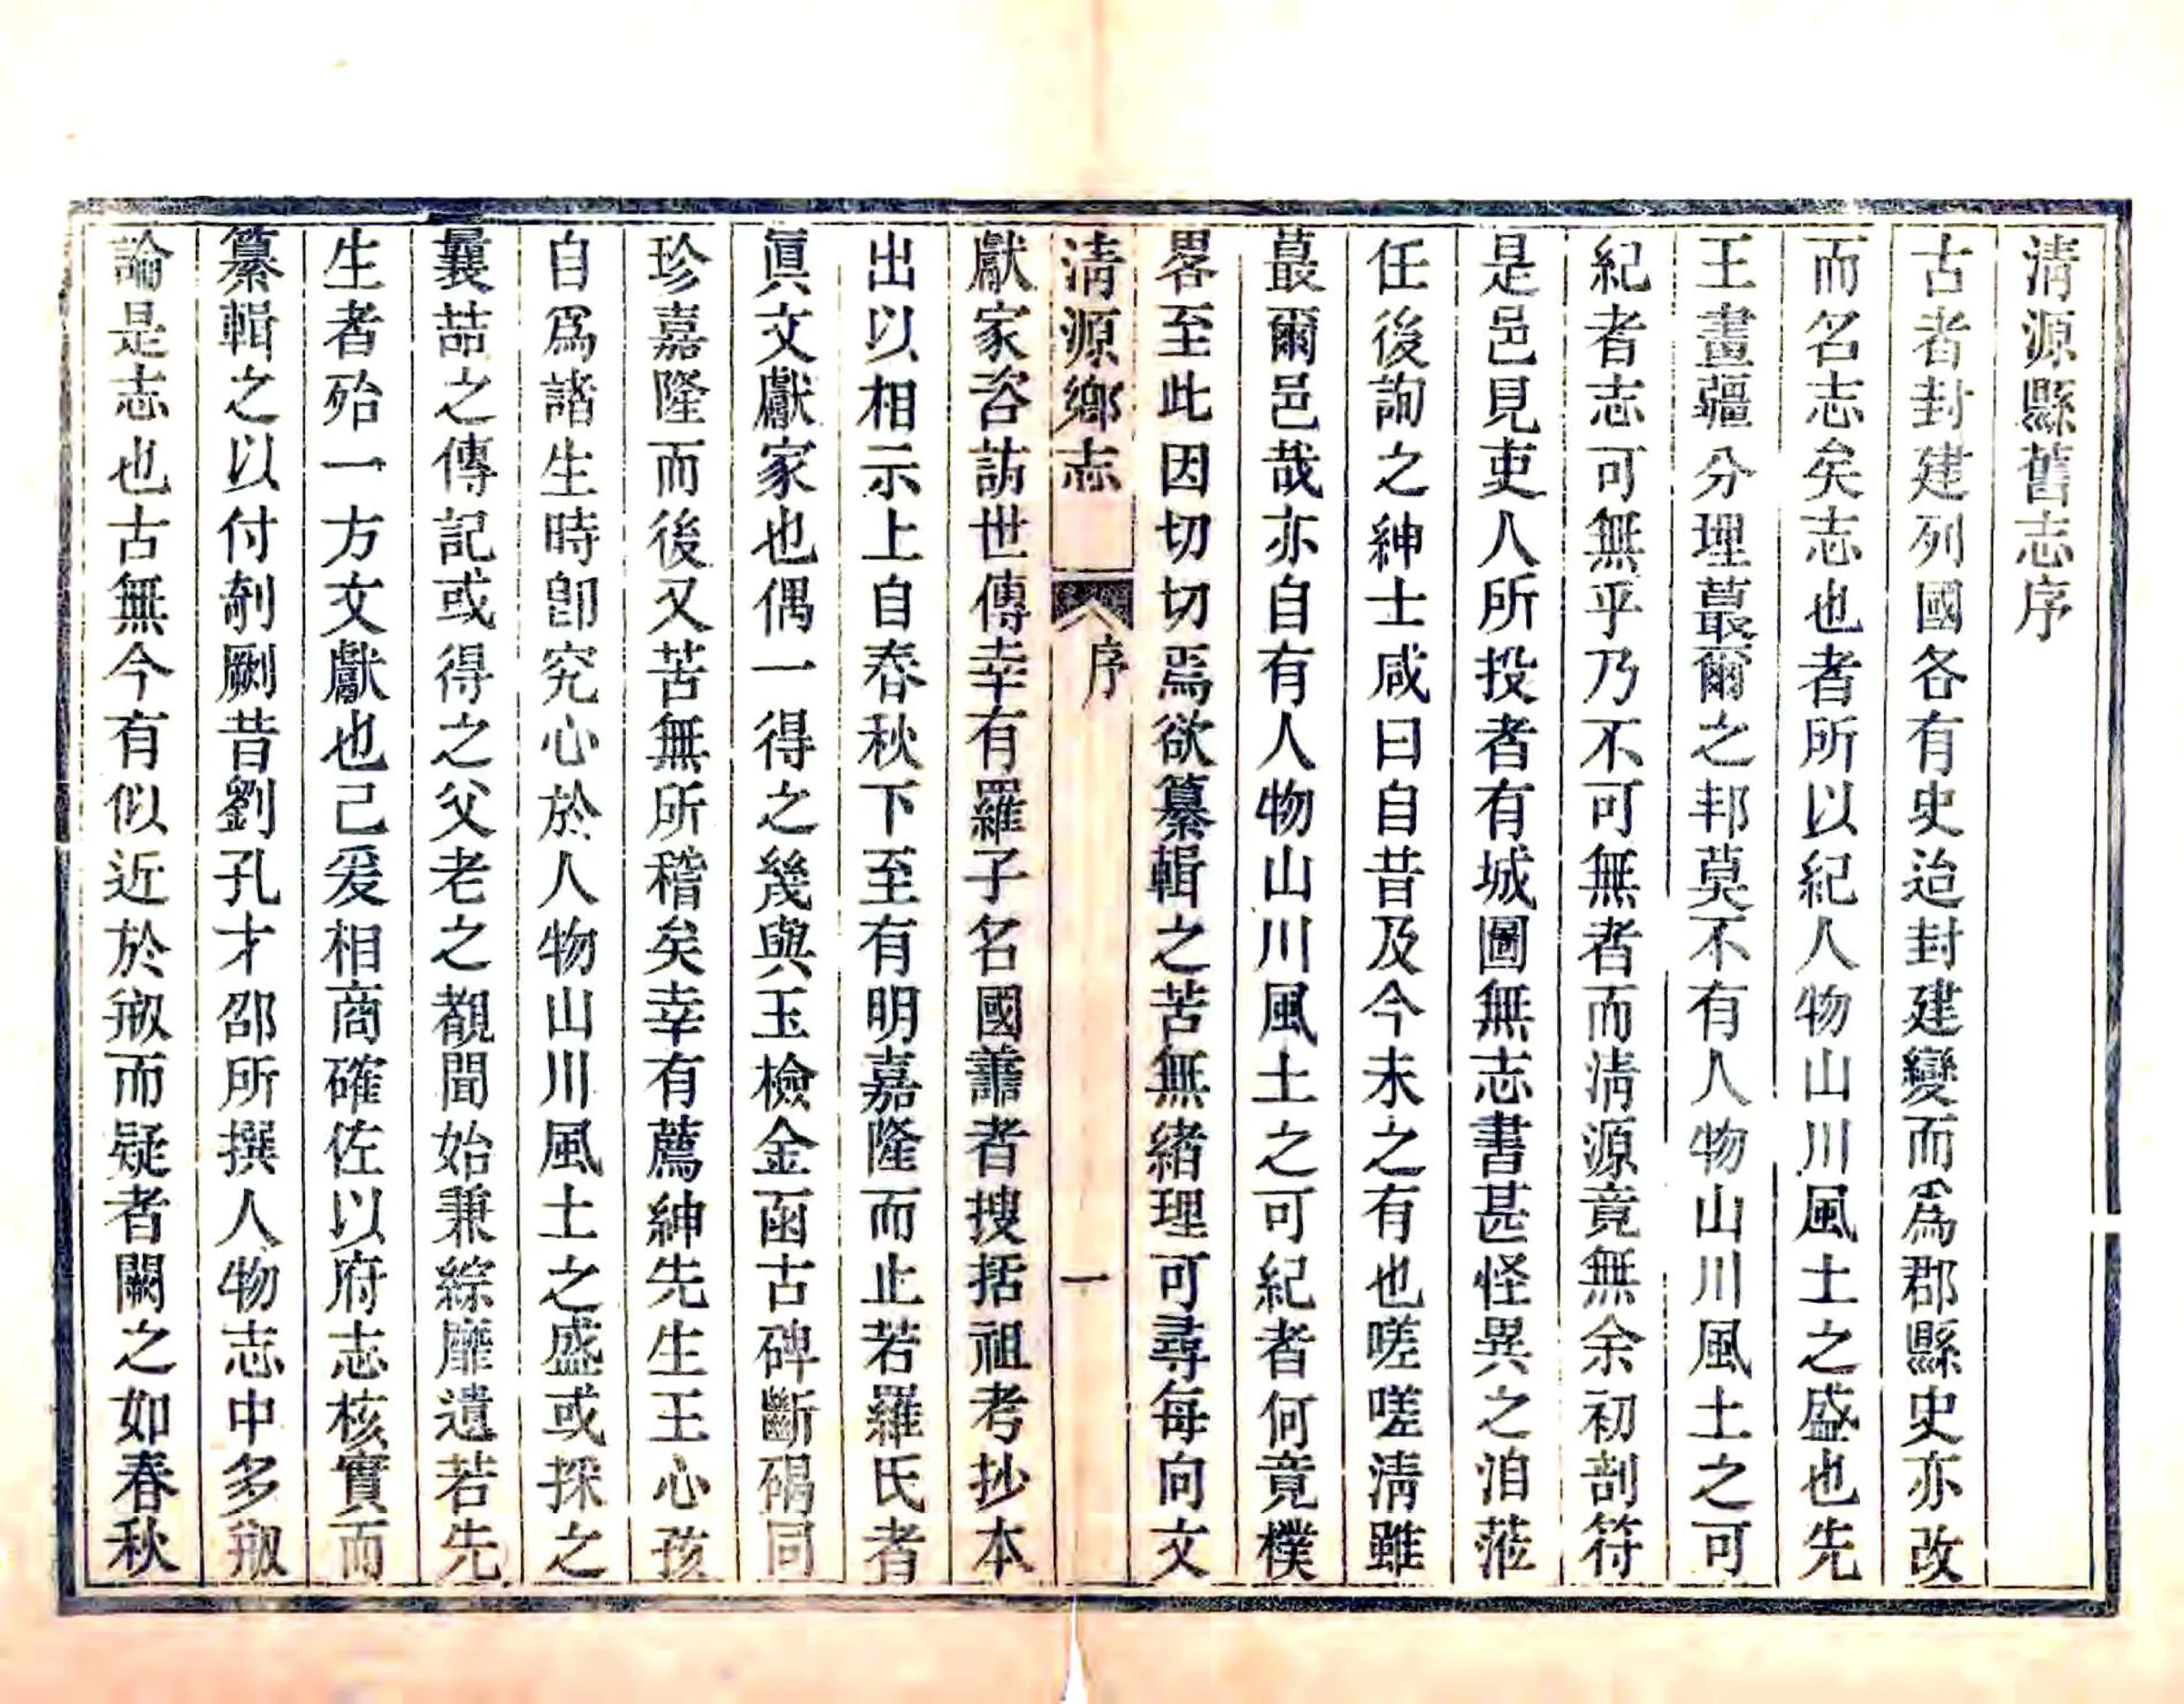 淸源縣舊志序
古者封建列國各有史迨封建變而爲郡縣史亦改
而名志矣志也者所以紀人物山川風土之盛也先
王畫疆分理蕞爾之邦莫不有人物山川風土之可
紀者志可無乎乃不可無者而淸源竟無余初剖符
是邑見吏人所投者有城圖無志書甚怪異之洎蒞
任後詢之紳士咸曰自昔及今未之有也嗟嗟淸雖
蕞爾邑哉亦自有人物山川風土之可紀者何竟樸
畧至此因切切焉欲纂輯之苦無緖理可尋每向文
淸源鄉志
序
一
獻家咨訪世傳幸有羅子名國譱者搜括祖考抄本
出以相示上自春秋下至有明嘉隆而止若羅氏者
眞文獻家也偶一得之幾與玉檢金函古碑斷碣同
珍嘉隆而後又苦無所稽矣幸有薦紳先生王心孩
自爲諸生時卽究心於人物山川風土之盛或採之
曩喆之傳記或得之父老之覩聞始兼綜靡遺若先
生者殆一方文獻也已爰相商確佐以府志核實而
纂輯之以付剞劂昔劉孔才邵所撰人物志中多刱
論是志也古無今有似近於刱而疑者闕之如春秋